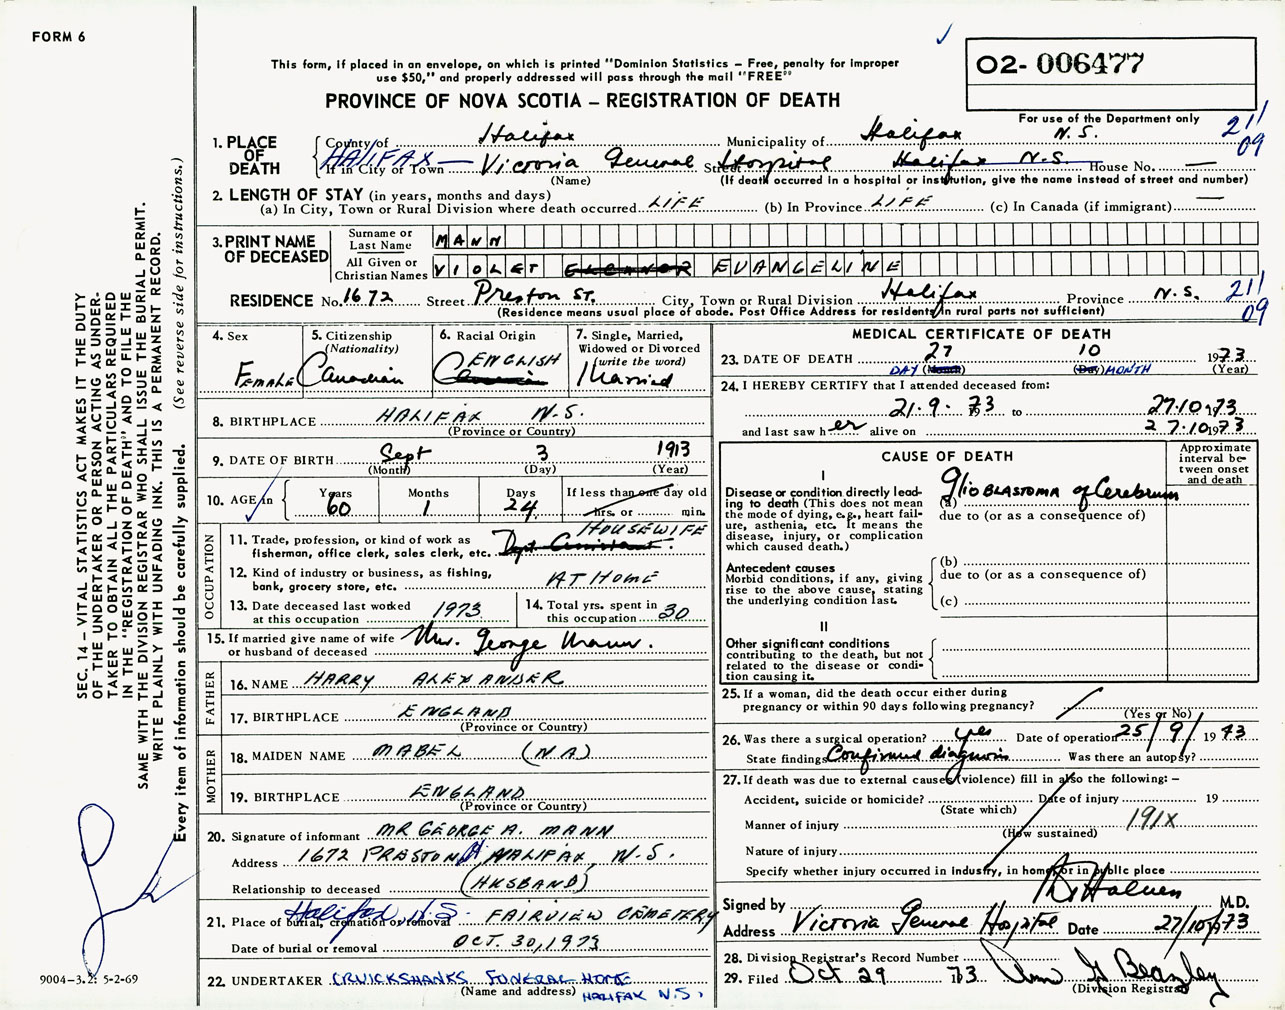 FORM 6
This form, if placed in an envelope, on which is printed "Dominion Statistics – Free, penalty for improper
use $50," and properly addressed will pass through the mail "FREE"
PROVINCE OF NOVA SCOTIA – REGISTRATION OF DEATH
02- 006477
For use of the Department only
211
09
SEC. 14 – VITAL STATISTICS ACT MAKES IT THE DUTY
OF THE UNDERTAKER OR PERSON ACTING AS UNDER-
TAKER TO OBTAIN ALL THE PARTICULARS REQUIRED
IN THE "REGISTRATION OF DEATH" AND TO FILE THE
SAME WITH THE DIVISION REGISTRAR WHO SHALL ISSUE THE BURIAL PERMIT.
WRITE PLAINLY WITH UNFADING INK. THIS IS A PERMANENT RECORD.
Every item of information should be carefully supplied. (See reverse side for instructions.)
1. PLACE OF DEATH
County of Halifax Municipality of Halifax N.S.
HALIFAX — If in City or Town Victoria General Street Hospital Halifax N.S. House No. —
(Name) (If death occurred in a hospital or institution, give the name instead of street and number)
2. LENGTH OF STAY (in years, months and days)
(a) In City, Town or Rural Division where death occurred LIFE (b) In Province LIFE (c) In Canada (if immigrant) —
3. PRINT NAME OF DECEASED
Surname or Last Name MANN
All Given or Christian Names VIOLET ELEANOR EVANGELINE
RESIDENCE No. 1672 Street Preston ST. City, Town or Rural Division Halifax Province N.S. 211
09
(Residence means usual place of abode. Post Office Address for residents in rural parts not sufficient)
4. Sex Female
5. Citizenship (Nationality) Canadian
6. Racial Origin ENGLISH Canadian
7. Single, Married, Widowed or Divorced (write the word) Married
8. BIRTHPLACE HALIFAX N.S.
(Province or Country)
9. DATE OF BIRTH Sept 3 1913
(Month) (Day) (Year)
10. AGE in Years 60 Months 1 Days 24 If less than one day old hrs. or min.
OCCUPATION
11. Trade, profession, or kind of work as fisherman, office clerk, sales clerk, etc. HOUSEWIFE
12. Kind of industry or business, as fishing, bank, grocery store, etc. AT HOME
13. Date deceased last worked at this occupation 1973
14. Total yrs. spent in this occupation 30
15. If married give name of wife or husband of deceased Mr. George Mann.
FATHER
16. NAME HARRY ALEXANDER
17. BIRTHPLACE ENGLAND
(Province or Country)
MOTHER
18. MAIDEN NAME MABEL (NA)
19. BIRTHPLACE ENGLAND
(Province or Country)
20. Signature of informant MR GEORGE A. MANN
Address 1672 PRESTON HALIFAX, N.S.
Relationship to deceased (HUSBAND)
21. Place of burial, cremation or removal Halifax N.S. FAIRVIEW CEMETERY
Date of burial or removal OCT. 30, 1973
22. UNDERTAKER CRUICKSHANKS FUNERAL HOME
(Name and address) HALIFAX N.S.
9004–3.2: 5-2-69
MEDICAL CERTIFICATE OF DEATH
23. DATE OF DEATH 27 10 1973
DAY (Month) (Day) MONTH (Year)
24. I HEREBY CERTIFY that I attended deceased from:
21.9.73 to 27.10.1973
and last saw her alive on 27.10.1973
CAUSE OF DEATH
Approximate interval between onset and death
I
Disease or condition directly leading to death (This does not mean the mode of dying, e.g., heart failure, asthenia, etc. It means the disease, injury, or complication which caused death.)
(a) Glioblastoma of Cerebrum
due to (or as a consequence of)
Antecedent causes
Morbid conditions, if any, giving rise to the above cause, stating the underlying condition last.
(b)
due to (or as a consequence of)
(c)
II
Other significant conditions
contributing to the death, but not related to the disease or condition causing it.
25. If a woman, did the death occur either during
pregnancy or within 90 days following pregnancy?
(Yes or No)
26. Was there a surgical operation? yes Date of operation 25/9/1973
State findings Confirmed diagnosis Was there an autopsy?
27. If death was due to external causes (violence) fill in also the following: –
Accident, suicide or homicide? Date of injury 19
(State which)
Manner of injury 191X
(How sustained)
Nature of injury
Specify whether injury occurred in industry, in home or in public place
Signed by M.D.
Address Victoria General Hospital Date 27/10/1973
28. Division Registrar's Record Number
29. Filed Oct 29 73
(Division Registrar)